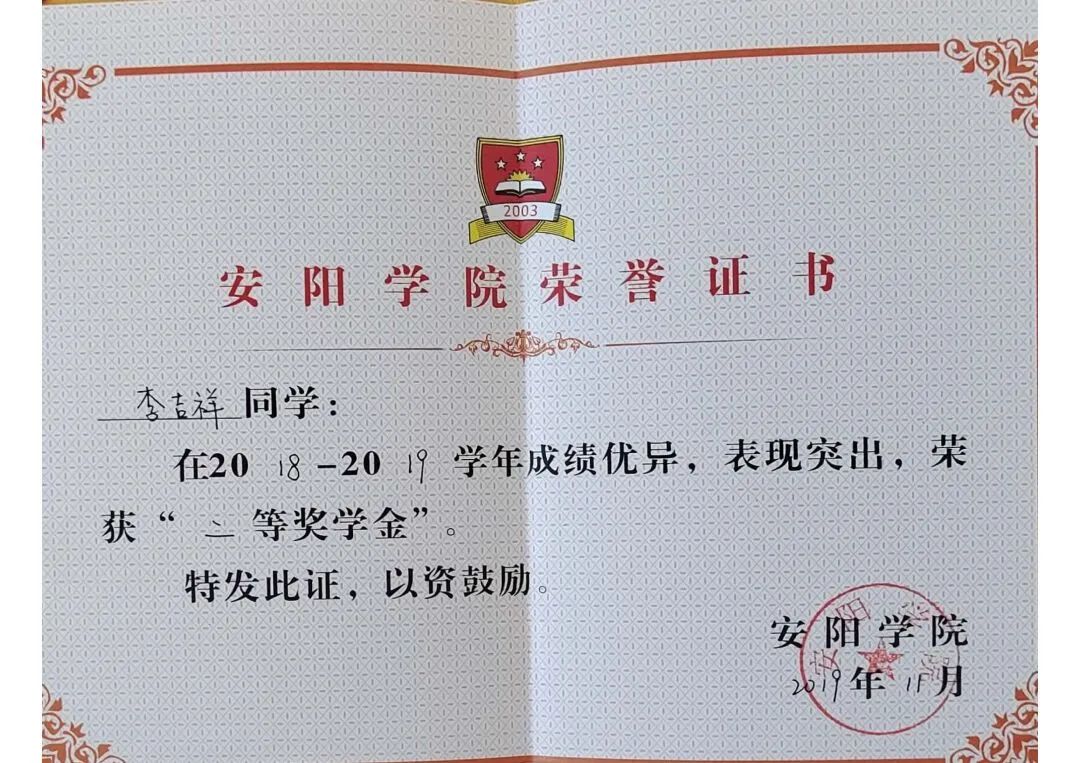 2003
安阳学院荣誉证书
李吉祥同学：
在2018-2019学年成绩优异，表现突出，荣
获“二等奖学金”。
特发此证，以资鼓励。
安阳学院
安阳学院
2019年11月